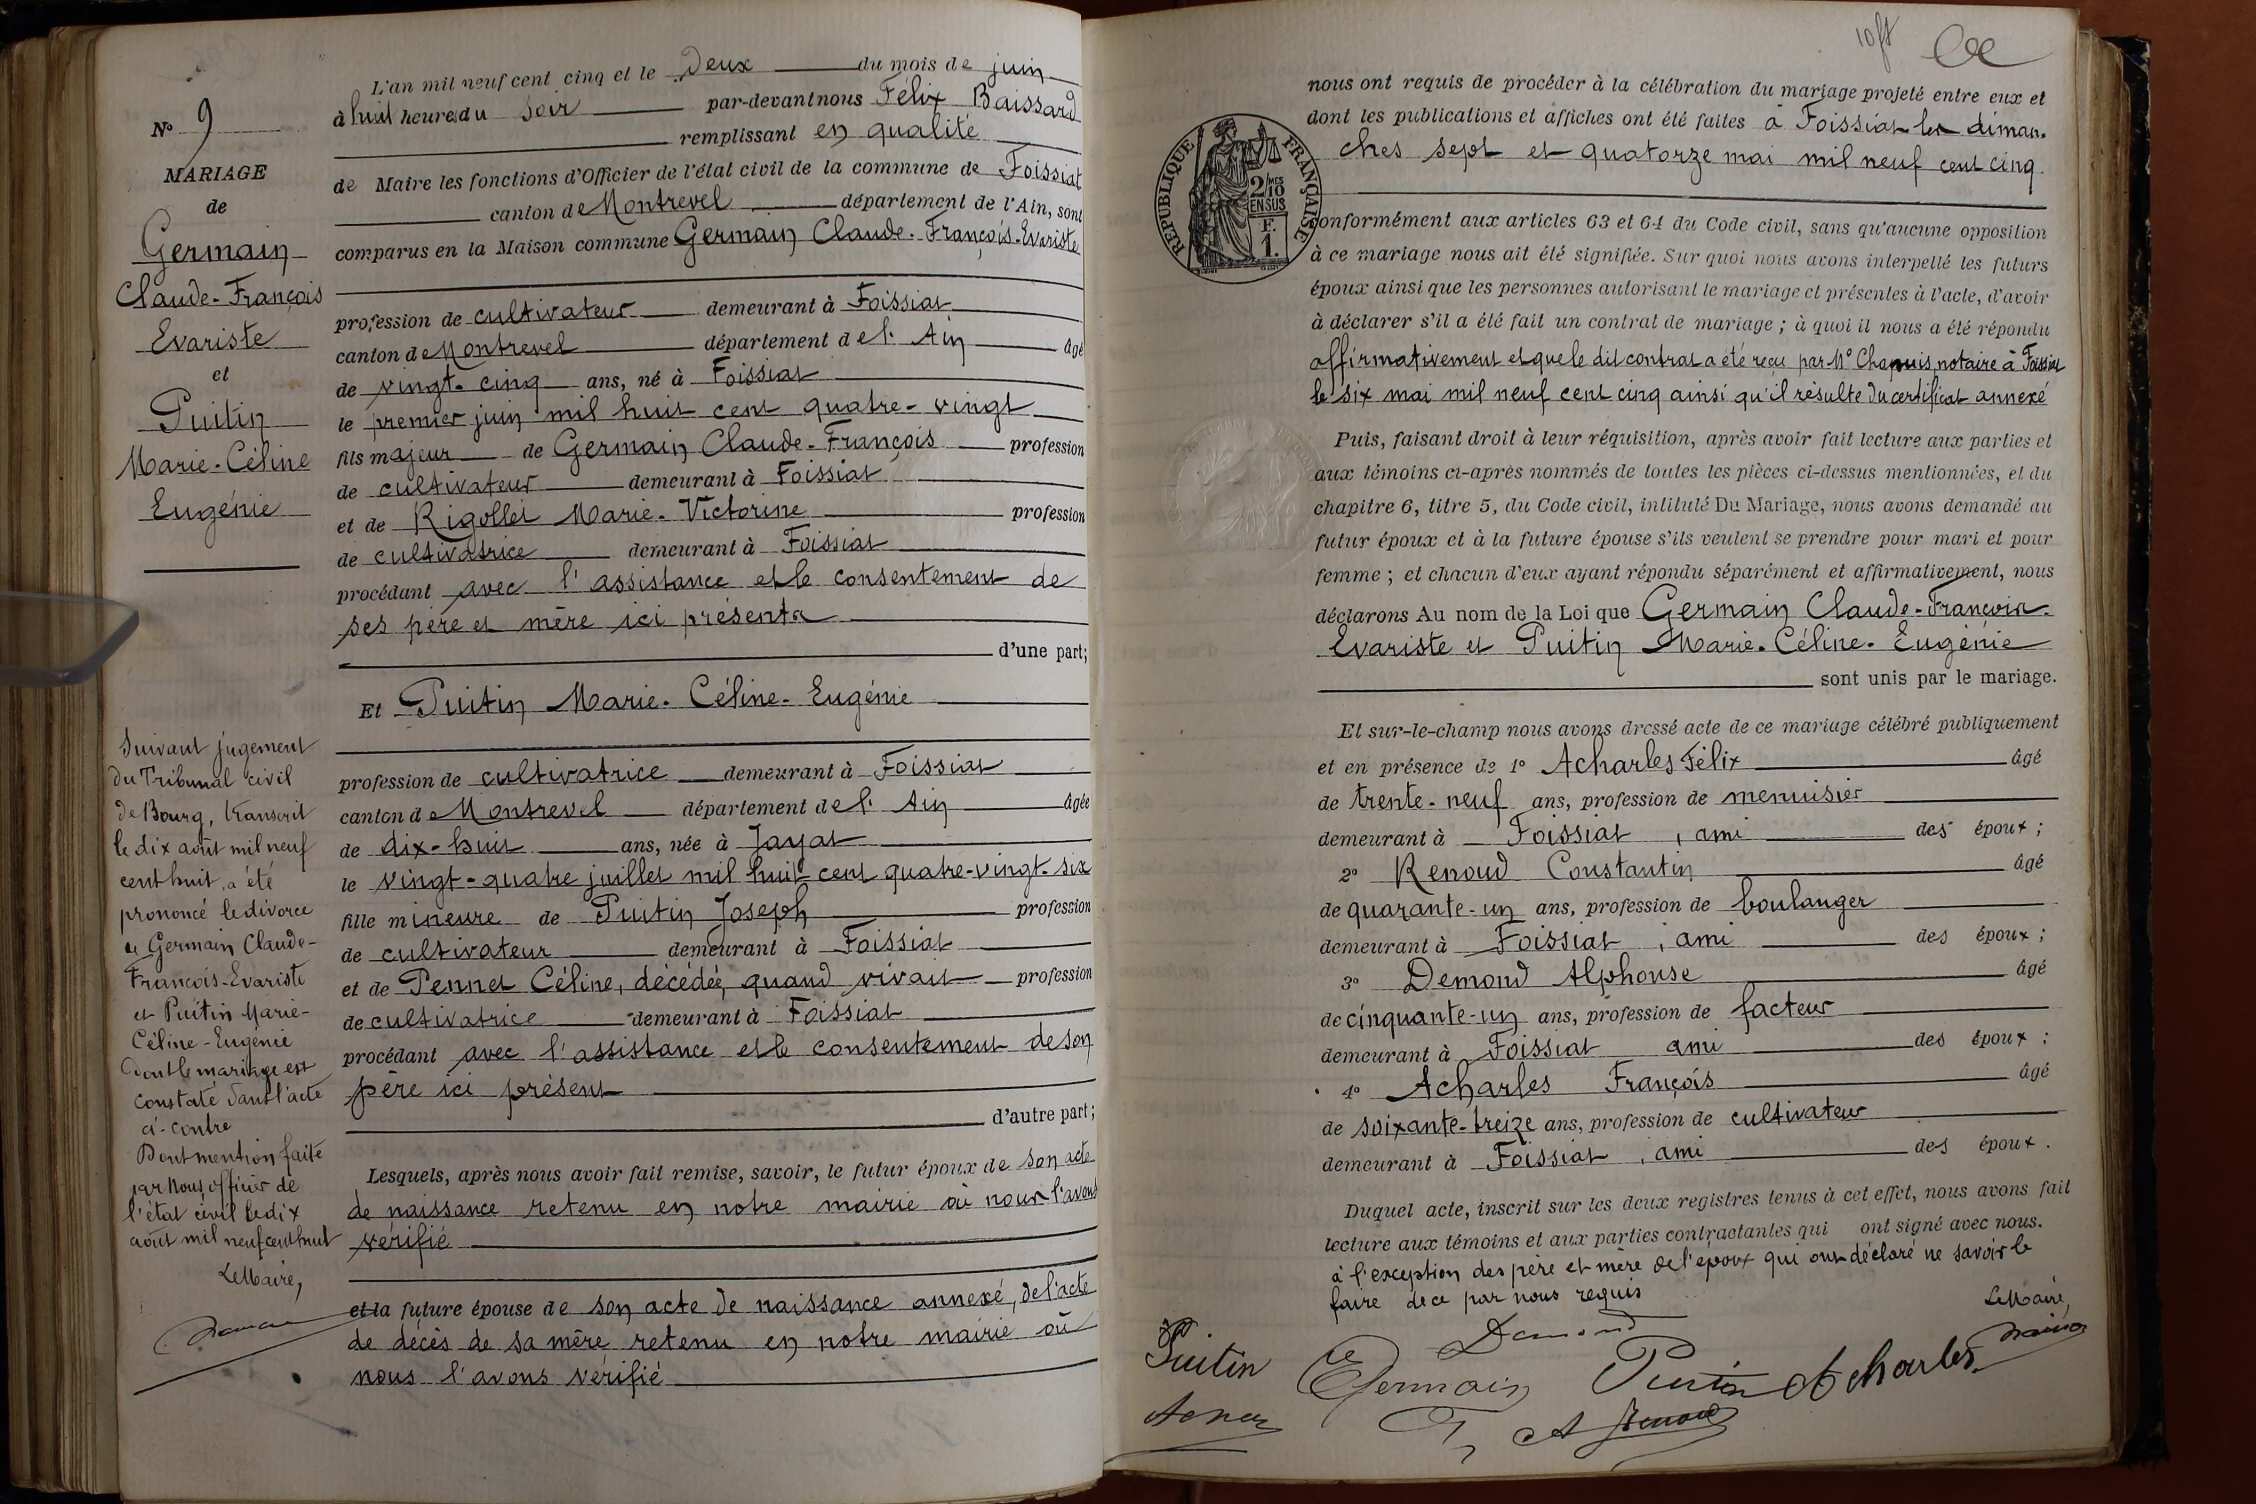 L'an mil neuf cent cinq et le Deux du mois de juin
à huit heures du soir par-devant nous Félix Baissard
remplissant en qualité
de Maire les fonctions d'Officier de l'état civil de la commune de Foissiat
canton de Montrevel département de l'Ain, sont
comparus en la Maison commune Germain Claude-François-Evariste
profession de cultivateur demeurant à Foissiat
canton de Montrevel département de l'Ain âgé
de vingt-cinq ans, né à Foissiat
le premier juin mil huit cent quatre-vingt
fils majeur de Germain Claude-François profession
de cultivateur demeurant à Foissiat
et de Rigollet Marie-Victorine profession
de cultivatrice demeurant à Foissiat
procédant avec l'assistance et le consentement de
ses père et mère ici présents
d'une part;
Et Puitin Marie-Céline-Eugénie
profession de cultivatrice demeurant à Foissiat
canton de Montrevel département de l'Ain âgée
de dix-huit ans, née à Jayat
le vingt-quatre juillet mil huit cent quatre-vingt-six
fille mineure de Puitin Joseph profession
de cultivateur demeurant à Foissiat
et de Pennet Céline, décédée, quand vivait profession
de cultivatrice demeurant à Foissiat
procédant avec l'assistance et le consentement de son
père ici présent
d'autre part;
Lesquels, après nous avoir fait remise, savoir, le futur époux de son acte
de naissance retenu en notre mairie où nous l'avons
vérifié
et la future épouse de son acte de naissance annexé, de l'acte
de décès de sa mère retenu en notre mairie où
nous l'avons vérifié
No 9
MARIAGE
de
Germain
Claude-François
Evariste
et
Puitin
Marie-Céline
Eugénie
Suivant jugement
du Tribunal civil
de Bourg, transcrit
le dix août mil neuf
cent huit, a été
prononcé le divorce
de Germain Claude-
François-Evariste
et Puitin Marie-
Céline-Eugénie
dont le mariage est
constaté dans l'acte
ci-contre
Dont mention faite
par Nous officier de
l'état civil le dix
août mil neuf cent huit
Le Maire,
nous ont requis de procéder à la célébration du mariage projeté entre eux et
dont les publications et affiches ont été faites à Foissiat les diman-
ches sept et quatorze mai mil neuf cent cinq
RÉPUBLIQUE FRANÇAISE
2/10 MES
EN SUS
F.
1.
conformément aux articles 63 et 64 du Code civil, sans qu'aucune opposition
à ce mariage nous ait été signifiée. Sur quoi nous avons interpellé les futurs
époux ainsi que les personnes autorisant le mariage et présentes à l'acte, d'avoir
à déclarer s'il a été fait un contrat de mariage ; à quoi il nous a été répondu
affirmativement et que le dit contrat a été reçu par Me Chapuis notaire à Foissiat
le six mai mil neuf cent cinq ainsi qu'il résulte du certificat annexé
Puis, faisant droit à leur réquisition, après avoir fait lecture aux parties et
aux témoins ci-après nommés de toutes les pièces ci-dessus mentionnées, et du
chapitre 6, titre 5, du Code civil, intitulé Du Mariage, nous avons demandé au
futur époux et à la future épouse s'ils veulent se prendre pour mari et pour
femme ; et chacun d'eux ayant répondu séparément et affirmativement, nous
déclarons Au nom de la Loi que Germain Claude-François-
Evariste et Puitin Marie-Céline-Eugénie
sont unis par le mariage.
Et sur-le-champ nous avons dressé acte de ce mariage célébré publiquement
et en présence de 1° Acharles Félix âgé
de trente-neuf ans, profession de menuisier
demeurant à Foissiat, ami des époux ;
2° Renoud Constantin âgé
de quarante-un ans, profession de boulanger
demeurant à Foissiat, ami des époux ;
3° Demond Alphonse âgé
de cinquante-un ans, profession de facteur
demeurant à Foissiat ami des époux ;
4° Acharles François âgé
de soixante-treize ans, profession de cultivateur
demeurant à Foissiat, ami des époux.
Duquel acte, inscrit sur les deux registres tenus à cet effet, nous avons fait
lecture aux témoins et aux parties contractantes qui ont signé avec nous.
à l'exception des père et mère de l'époux qui ont déclaré ne savoir le
faire de ce par nous requis
Le Maire,
Demond
Puitin
Germain Puitin Acharles
Renoud